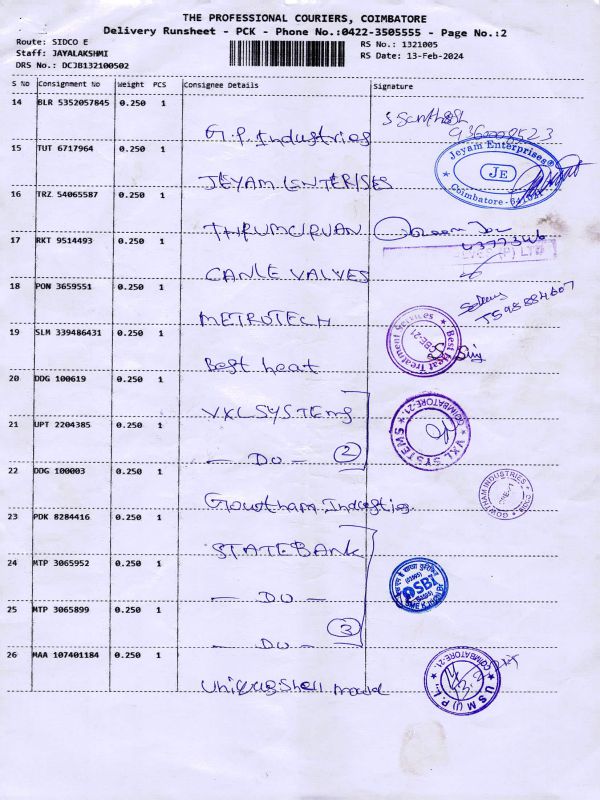 THE PROFESSIONAL COURIERS, COIMBATORE
Delivery Runsheet - PCK - Phone No.:0422-3505555 - Page No.:2
Route: SIDCO E
RS No.: 1321005
Staff: JAYALAKSHMI
RS Date: 13-Feb-2024
DRS No.: DCJB132100502
S No Consignment No Weight PCS Consignee Details Signature
14 BLR 5352057845 0.250 1
G.P. Industries
15 TUT 6717964 0.250 1
Jeyam Enterprises
JE
Coimbatore
JEYAM ENTERISES
16 TRZ 54065587 0.250 1
17 RKT 9514493 0.250 1
(P) LTD
CANLE VALVES
18 PON 3659551 0.250 1
METROTECH
19 SLM 339486431 0.250 1
Best Heat Treatment Services
CBE-21
Best heat
20 DDG 100619 0.250 1
VXL SYSTEMS
21 UPT 2204385 0.250 1
VXL SYSTEMS
COIMBATORE-21.
- DO - 2
22 DDG 100003 0.250 1
GOWTHAM INDUSTRIES
Gowtham Industries
23 PDK 8284416 0.250 1
STATE BANK
24 MTP 3065952 0.250 1
SBI
- DO -
25 MTP 3065899 0.250 1
- DO - 3
26 MAA 107401184 0.250 1
COIMBATORE-21.
U S M (I) P. L.
Unique Shell mould